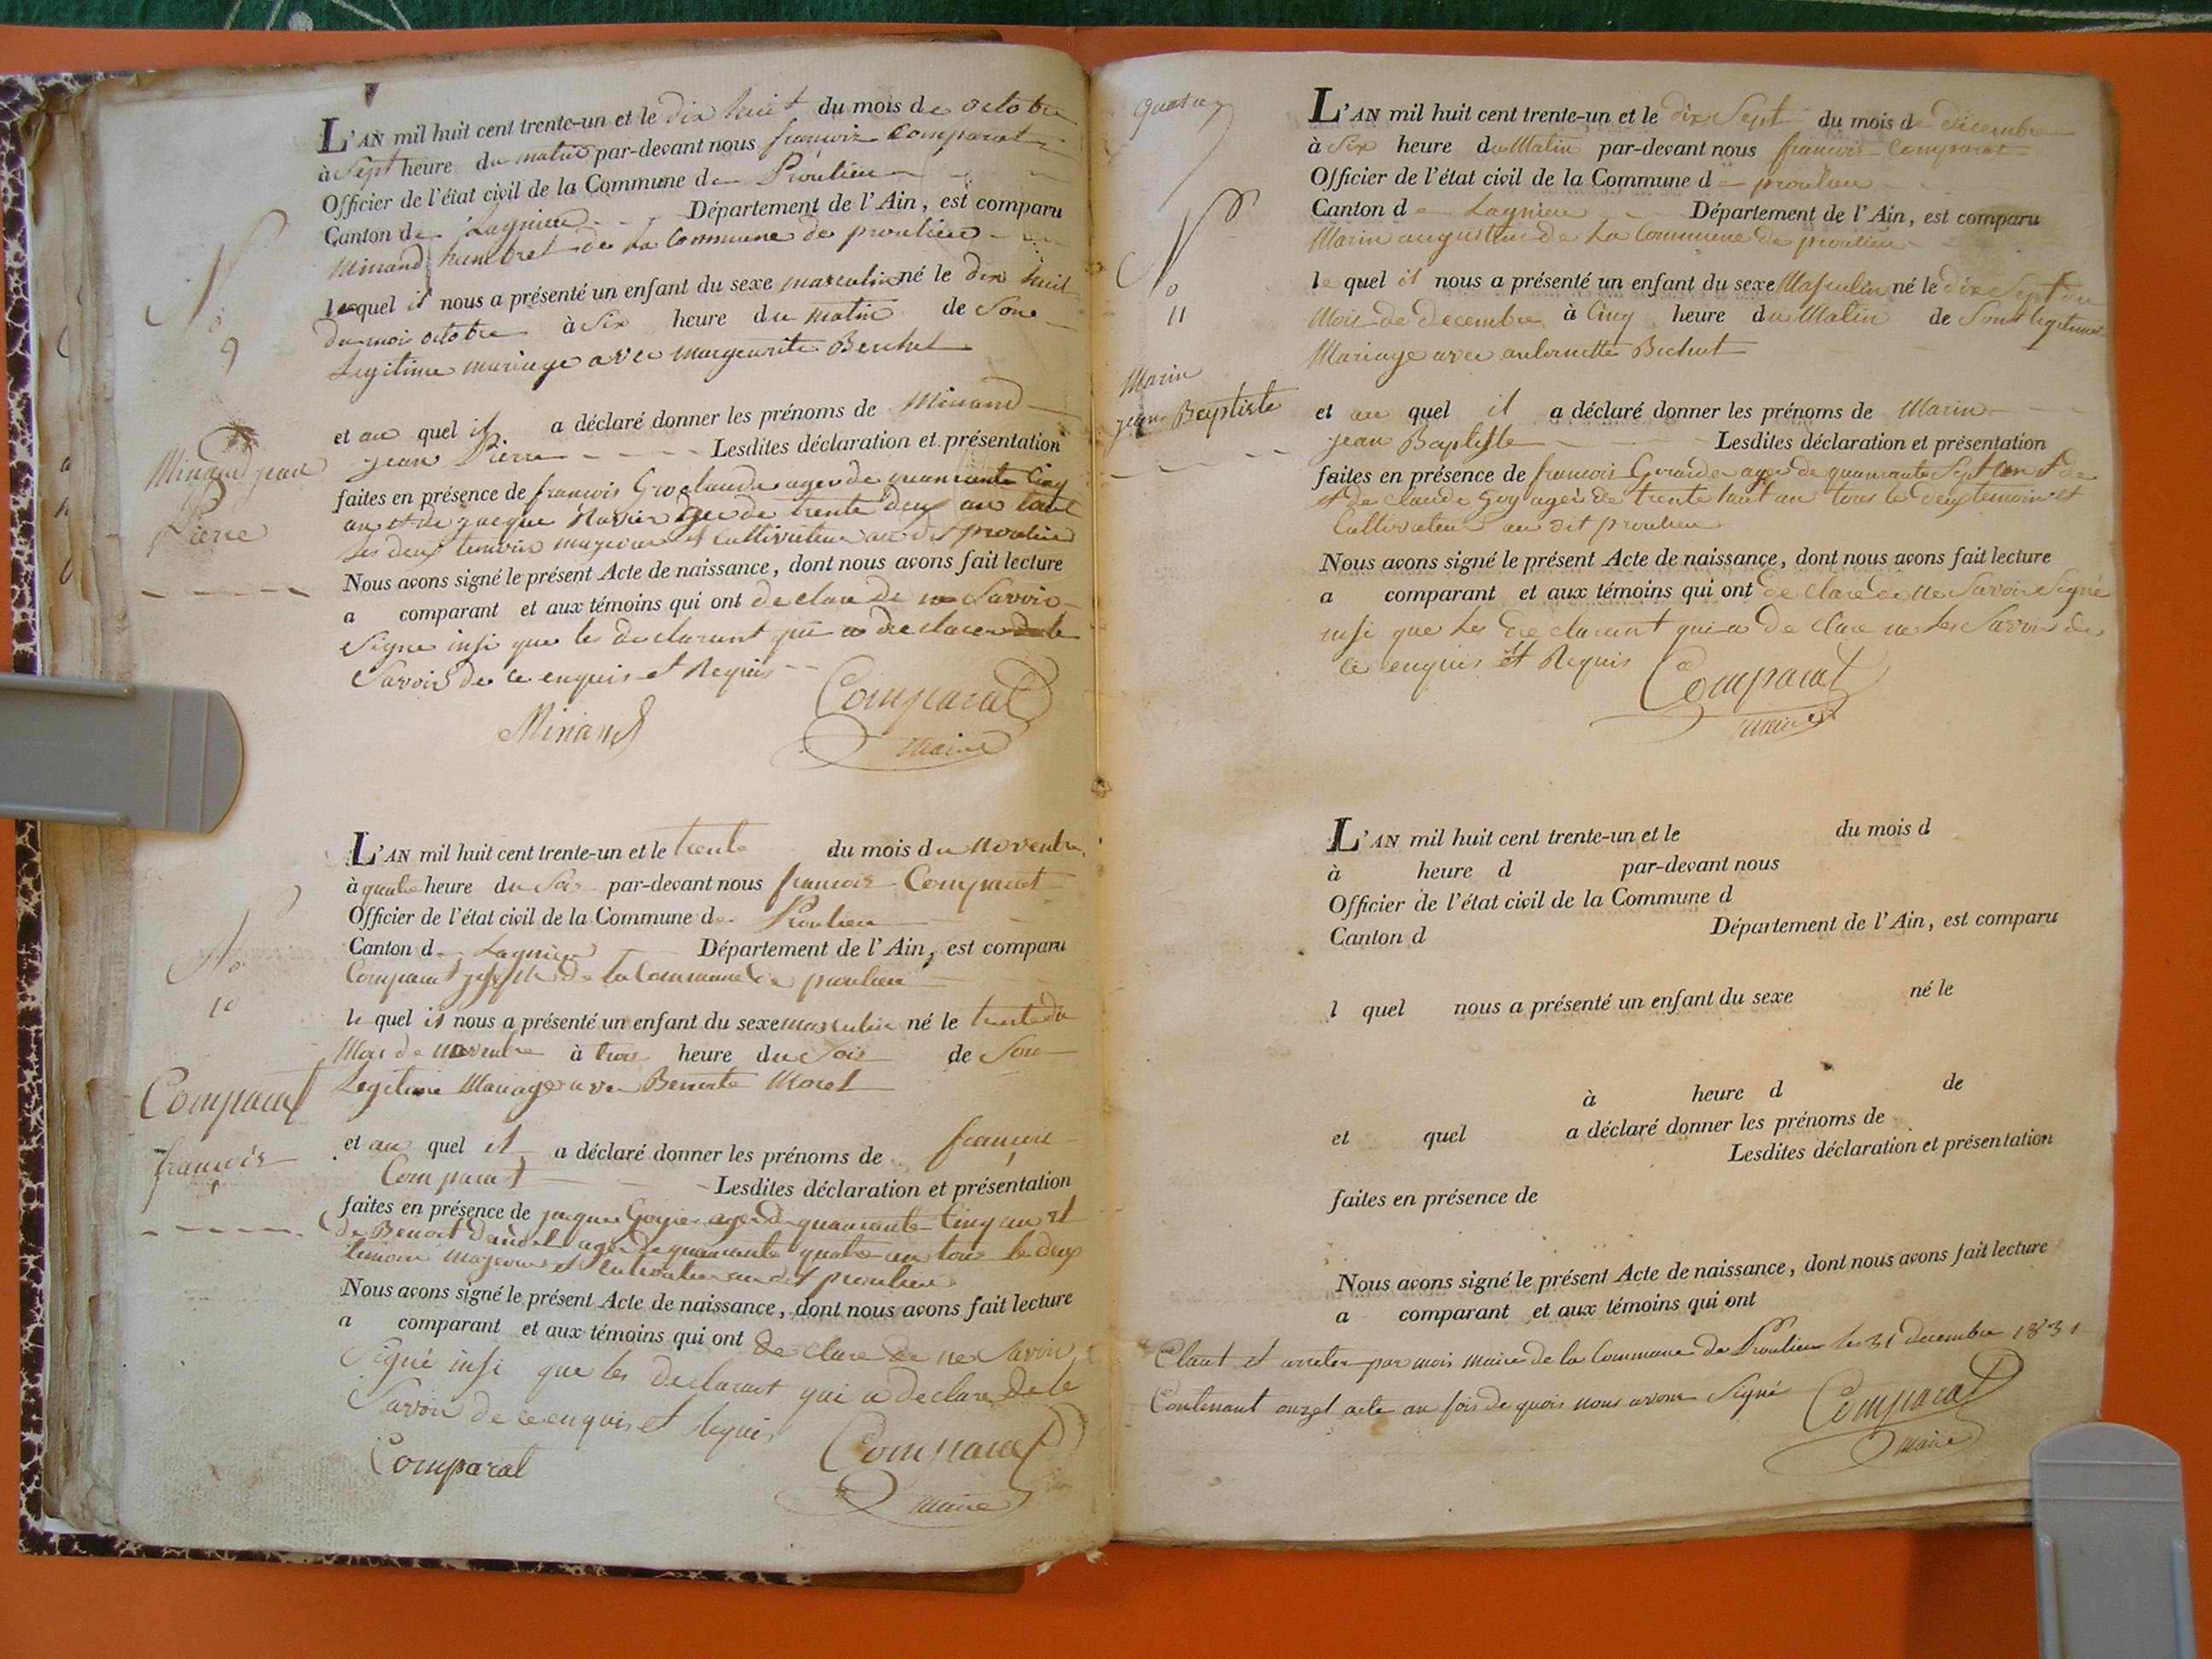 L'AN mil huit cent trente-un et le dix huit du mois de octobre
à Sept heure du matin par-devant nous francois Comparat
Officier de l'état civil de la Commune de Proulieu
Canton de Lagnieu Département de l'Ain, est comparu
Minand humbret de la Commune de proulieu
lequel il nous a présenté un enfant du sexe masculin né le dix huit
du mois octobre à Six heure du matin de Son
Legitime mariage avec margeurite Berchet
et au quel il a déclaré donner les prénoms de Minand
jean Pierre Lesdites déclaration et présentation
faites en présence de françois Groclaude agée de quarante Cinq
an et de jacque age de trente deux an tout
les deux temoin majeur et Cultivateur au dit proulieu
Nous avons signé le présent Acte de naissance, dont nous avons fait lecture
a comparant et aux témoins qui ont declare de ne Savoir
Signe insi que les declarant qui a declarer de le
Savoir de ce enquis et Requis
Minand Comparat
maire
N°
9
Minand jean
Pierre
L'AN mil huit cent trente-un et le trente du mois du Novembre
à quatre heure du Soir par-devant nous francois Comparat
Officier de l'état civil de la Commune de Proulieu
Canton de Lagnieu Département de l'Ain, est comparu
Comparat joseph de la Commune de proulieu
le quel il nous a présenté un enfant du sexe masculin né le trente du
Mois de Novembre à trois heure du Soir de Son
Legitime Mariage avec Benoite Moret
et au quel il a déclaré donner les prénoms de françois
Comparat Lesdites déclaration et présentation
faites en présence de jacque age de quarante Cinq an et
de Benoit age de quarante quatre an tous le deux
temoin majeur et Cultivateur au dit proulieu
Nous avons signé le présent Acte de naissance, dont nous avons fait lecture
a comparant et aux témoins qui ont de clare de ne Savoir
Signé insi que les declarant qui a declare de le
Savoir de ce enquis et Requis
Comparat Comparat
maire
N°
10
Comparat
francois
quatre
N°
11
Marin
jean Baptiste
L'AN mil huit cent trente-un et le dix Sept du mois de decembre
à Six heure du Matin par-devant nous francois Comparat
Officier de l'état civil de la Commune de proulieu
Canton de Lagnieu Département de l'Ain, est comparu
Marin augustin de La Commune de proulieu
le quel il nous a présenté un enfant du sexe Masculin né le dix Sept du
Mois de decembre à Cinq heure du Matin de Son legitime
Mariage avec antoinette Bechet
et au quel il a déclaré donner les prénoms de Marin
jean Baptiste Lesdites déclaration et présentation
faites en présence de francois age de quarante Sept an et de
et de claude Goy agei de trente huit an tous le deux temoin et
Cultivateur au dit proulieu
Nous avons signé le présent Acte de naissance, dont nous avons fait lecture
a comparant et aux témoins qui ont de clare de ne Savoir Signé
insi que les declarant qui a de clare ne les Savoir de
ce enquis et Requis Comparat
maire
L'AN mil huit cent trente-un et le du mois d
à heure d par-devant nous
Officier de l'état civil de la Commune d
Canton d Département de l'Ain, est comparu
l quel nous a présenté un enfant du sexe né le
à heure d de
et quel a déclaré donner les prénoms de
Lesdites déclaration et présentation
faites en présence de
Nous avons signé le présent Acte de naissance, dont nous avons fait lecture
a comparant et aux témoins qui ont
Claut et arreter par mois maire de la Commune de Proulieu les 31 decembre 1831
Contenant onzet acte au fois de quois nous avons Signé Comparat
maire